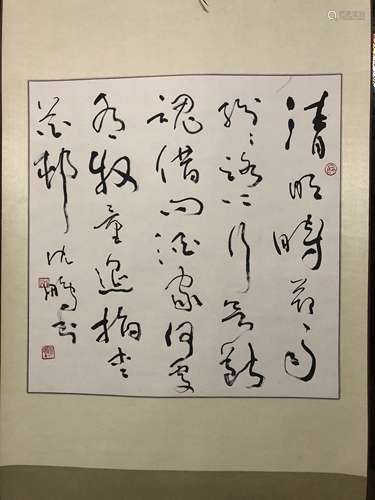 清明時節雨
紛〻路上行人欲斷
魂借問酒家何處
有牧童遥指杏
花邨
沈鵬書